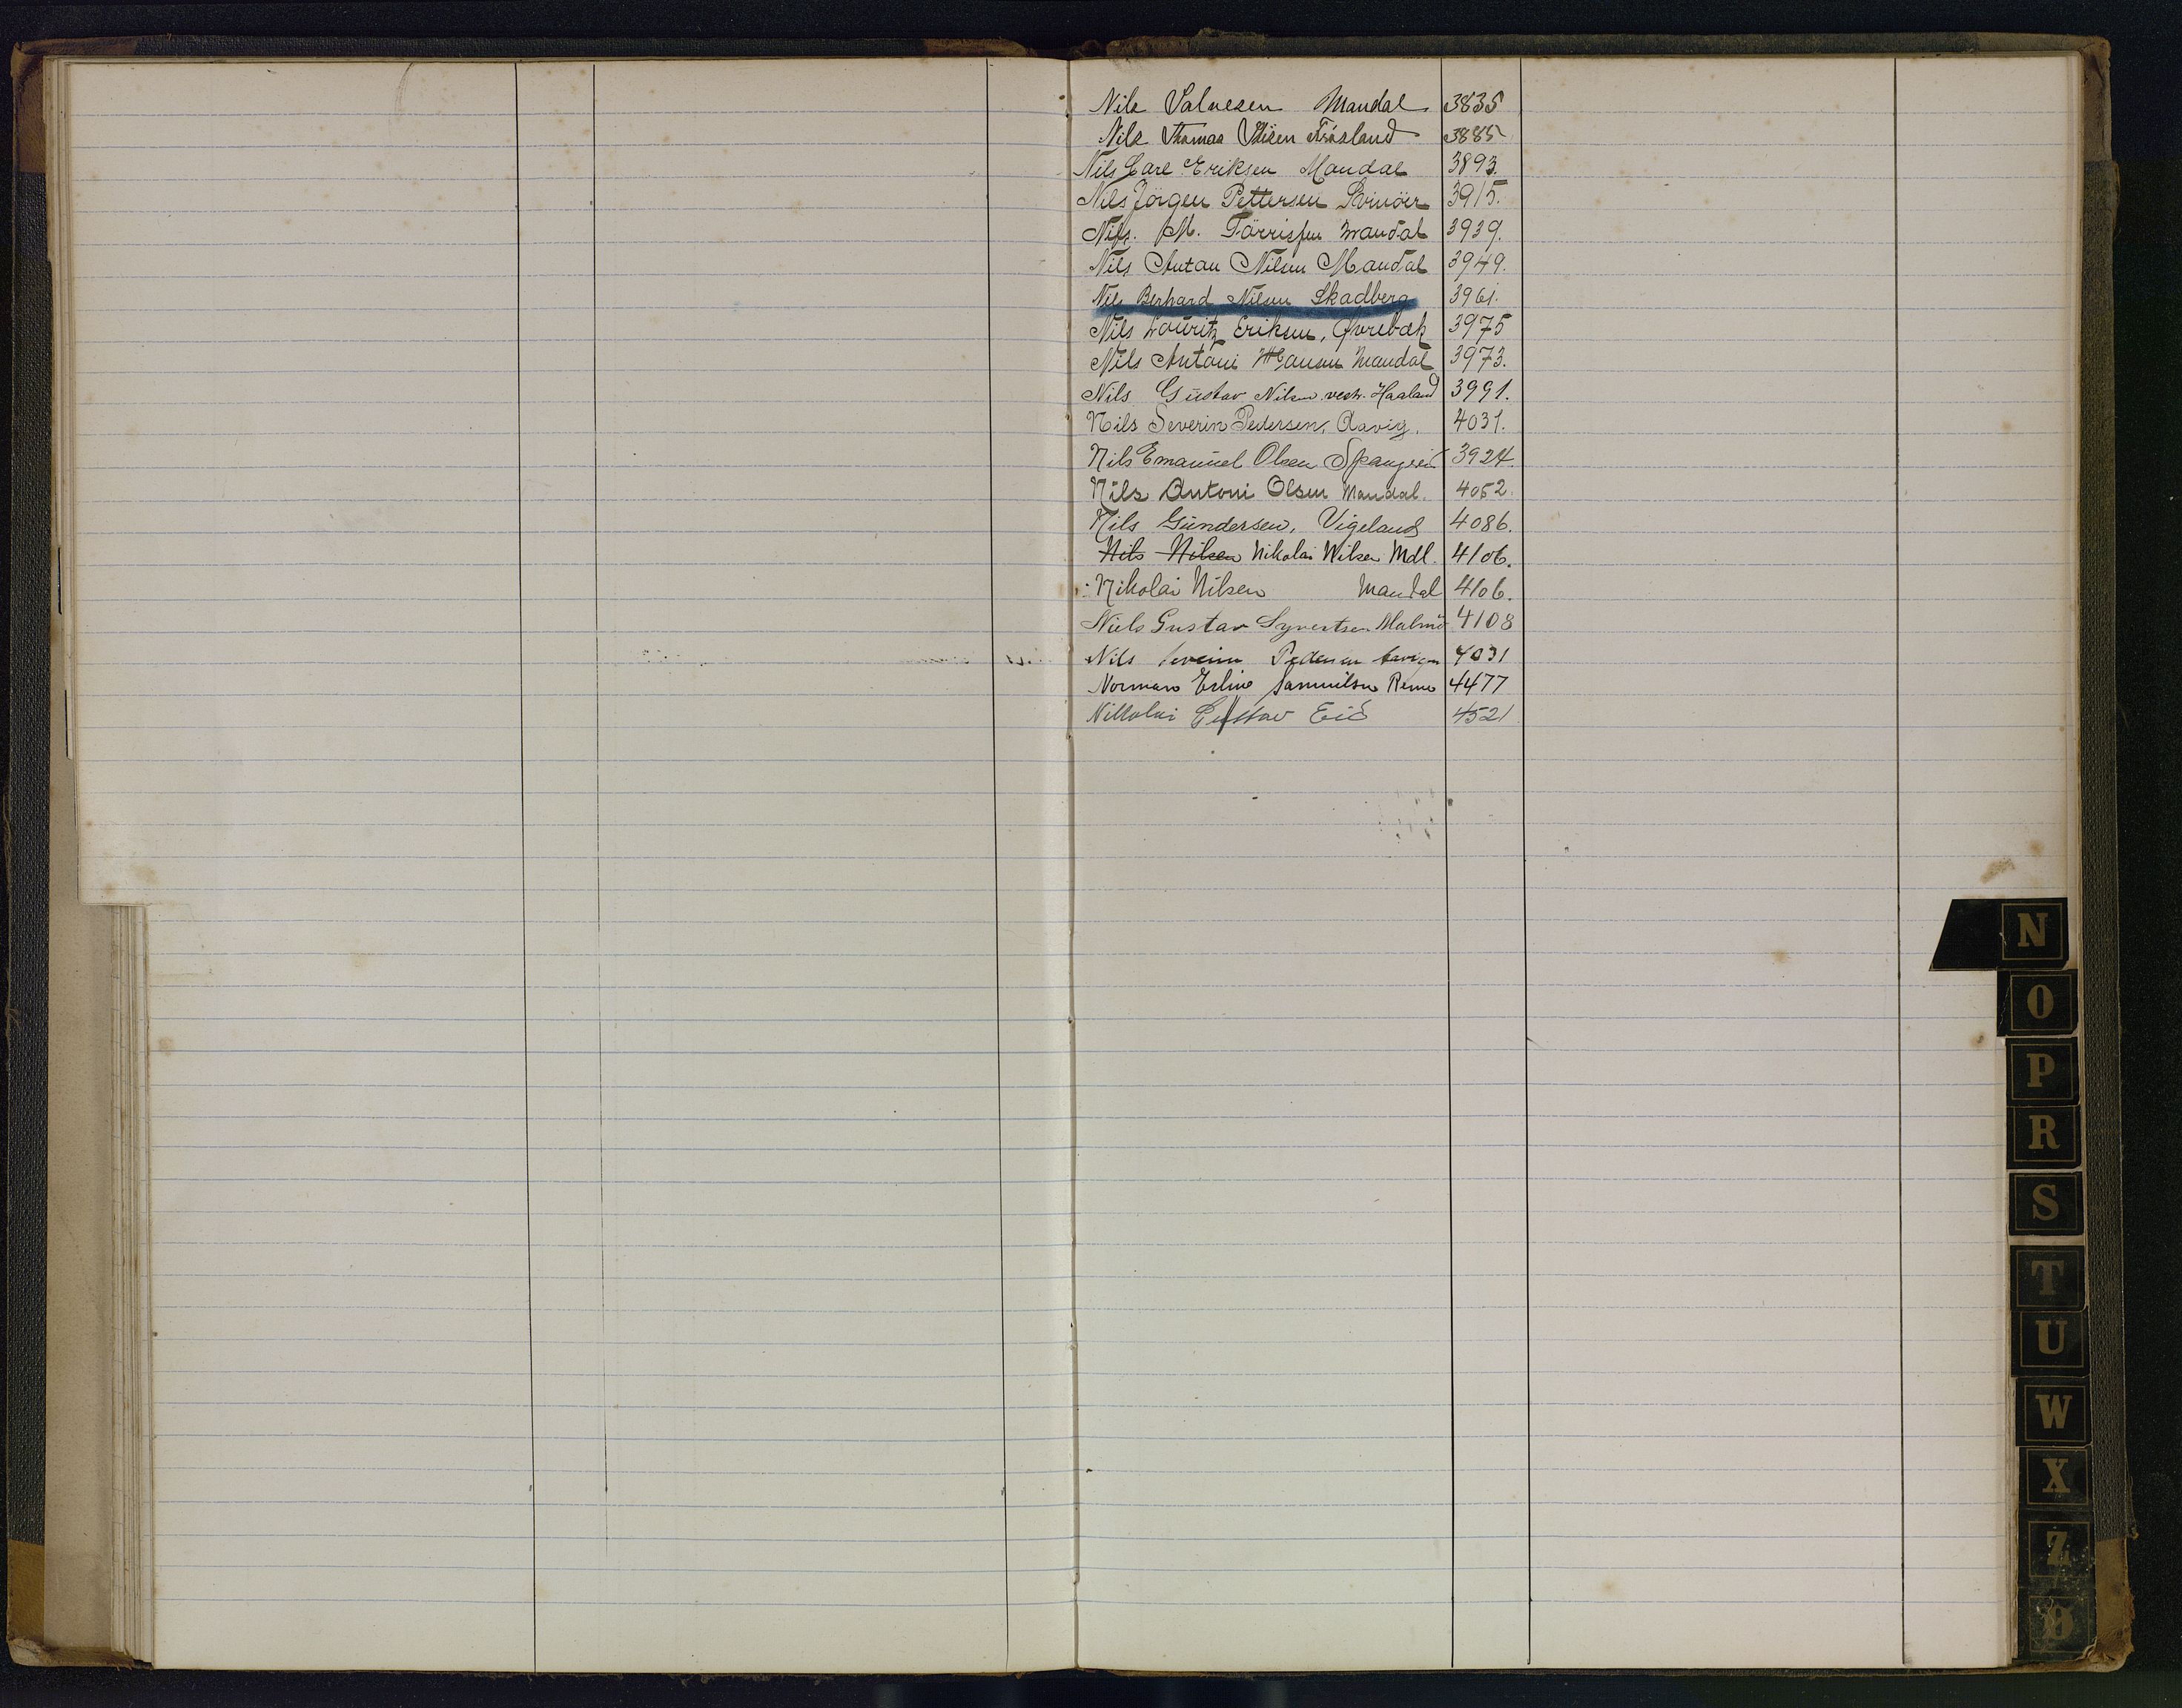 Nils Salvesen Mandal 3835
Nils Thomas Frøsland 3885
Nils Carl Eriksen Mandal 3893.
Nils Jörgen Pettersen Svinöer 3915.
Nils. M. Törrissen Mandal 3939.
Nils Antan Nilsen Mandal 3949.
Nils Berhard Nilsen Skadberg 3961.
Nils Lauritz Eriksen, 3975
Nils Antoni Hansen Mandal 3973.
Nils Gustav Nilsen vestr. Haaland 3991.
Nils Severin Pedersen, Aavig. 4031.
Nils Emanuel Olsen Spangereid 3924.
Nils Antoni Olsen Mandal. 4052.
Nils Gundersen, Vigeland 4086.
Nils Nilsen Nikolai Nilsen Mdl. 4106.
Nikolai Nilsen Mandal 4106.
Niels Gustav Syvertsen Malmö 4108
Nils Severin Pedersen 4031
Norman Erling Samuelsen 4477
Nikolai Gustav Eid 4521
N
O
P
R
S
T
U
W
X
Z
Ø